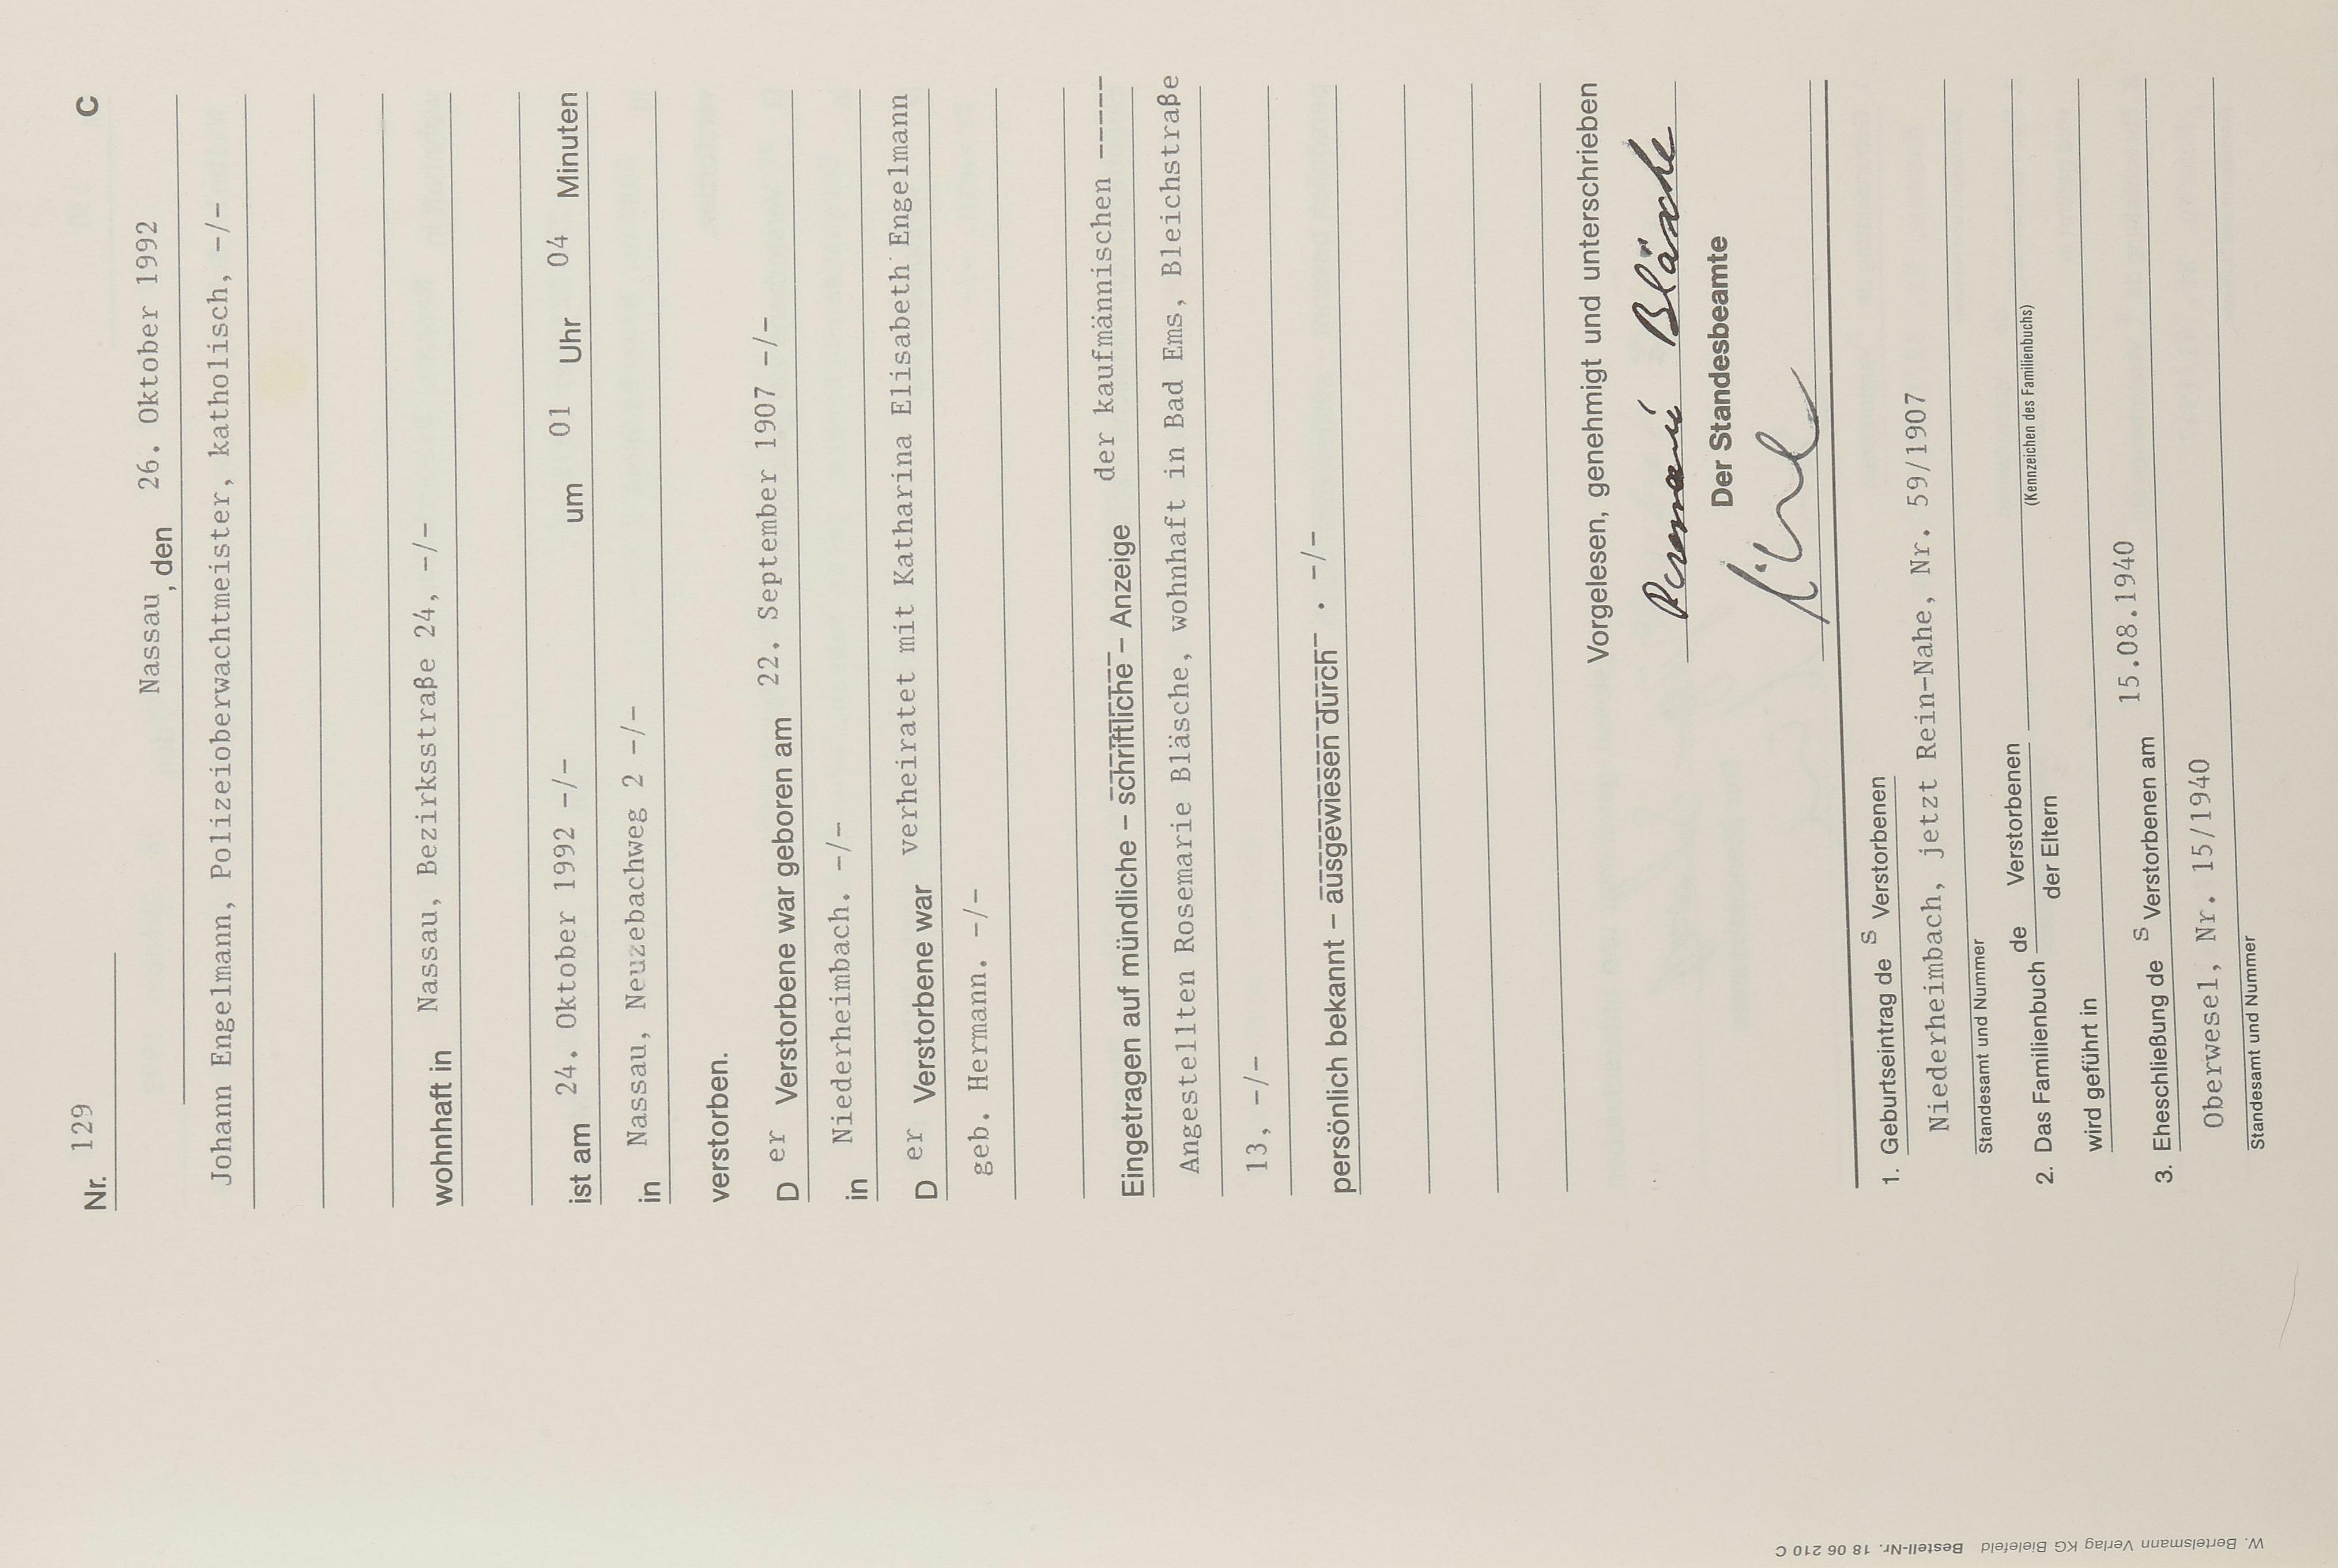 Nr. 129 C
Nassau, den 26. Oktober 1992
Johann Engelmann, Polizeioberwachtmeister, katholisch, -/-
wohnhaft in Nassau, Bezirksstraße 24, -/-
ist am 24. Oktober 1992 -/- um 01 Uhr 04 Minuten
in Nassau, Neuzebachweg 2 -/-
verstorben.
D er Verstorbene war geboren am 22. September 1907 -/-
in Niederheimbach. -/-
D er Verstorbene war verheiratet mit Katharina Elisabeth Engelmann
geb. Hermann. -/-
Eingetragen auf mündliche – schriftliche – Anzeige der kaufmännischen -----
Angestellten Rosemarie Bläsche, wohnhaft in Bad Ems, Bleichstraße
13, -/-
persönlich bekannt – ausgewiesen durch . -/-
Vorgelesen, genehmigt und unterschrieben
Rosemarie Bläsche
Der Standesbeamte
1. Geburtseintrag de s Verstorbenen
Niederheimbach, jetzt Rein-Nahe, Nr. 59/1907
Standesamt und Nummer
2. Das Familienbuch de Verstorbenen
der Eltern
(Kennzeichen des Familienbuchs)
wird geführt in
3. Eheschließung de s Verstorbenen am 15.08.1940
Oberwesel, Nr. 15/1940
Standesamt und Nummer
W. Bertelsmann Verlag KG Bielefeld Bestell-Nr. 18 06 210 C